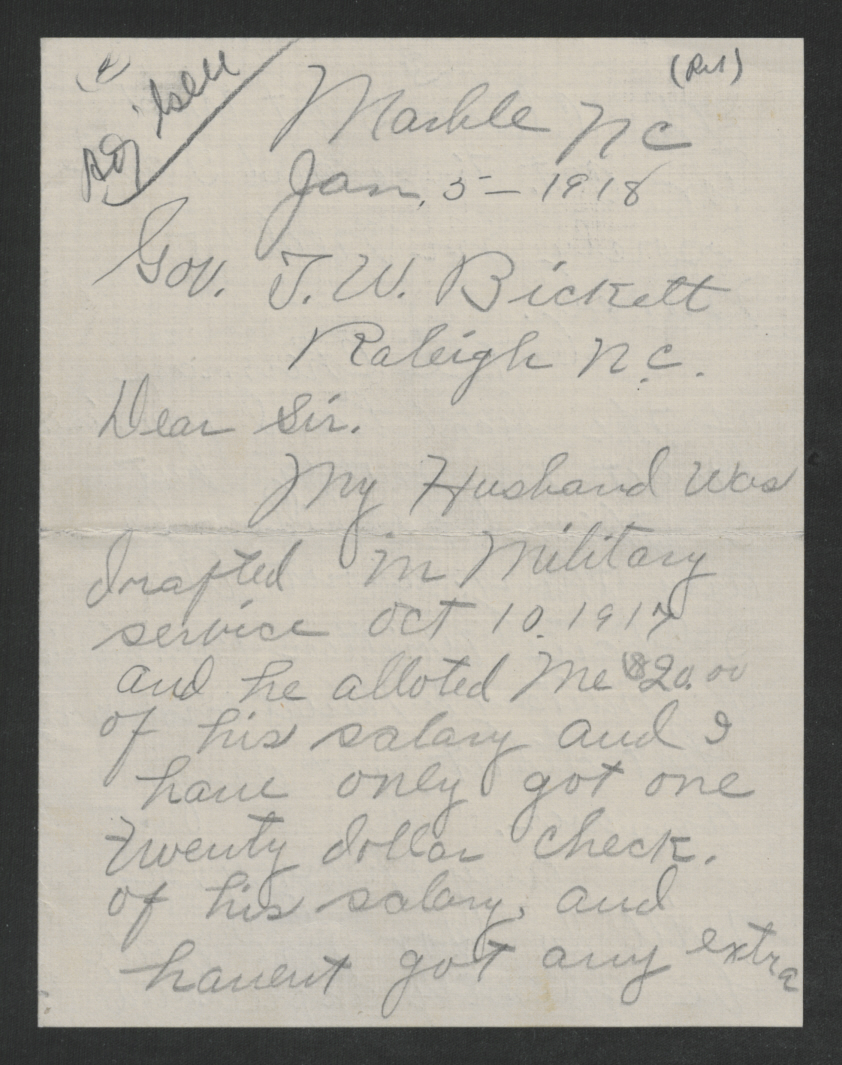 (Ret)
Marble NC
Jan, 5- 1918
Gov. T. W. Bickett
Raleigh N.C.
Dear Sir.
My Husband Was
drafted in Military
service Oct 10. 1917
and he alloted Me $20.00
of his salary and I
have only got one
twenty dollar check.
of his salary, and
havent got any extra